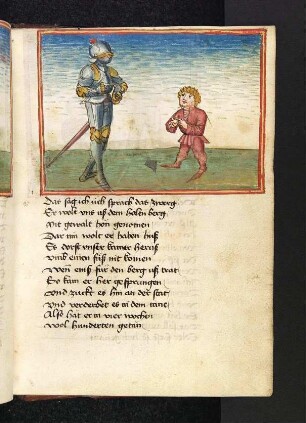 Das sag ich üch sprach das zwerg
Er wolt uns uß dem holen berg
Mit gewalt hon genomen
Dar um wolt er haben huß
Es dorst unser keiner heruß
Umb einen fůß nit komen
Wen einß für den berg uß trat
So kam er her gesprungen
Und zuckt es hin an der stat
Und verderbet es in dem tane
Alß hat er in vier wochen
Wol hunderten getan